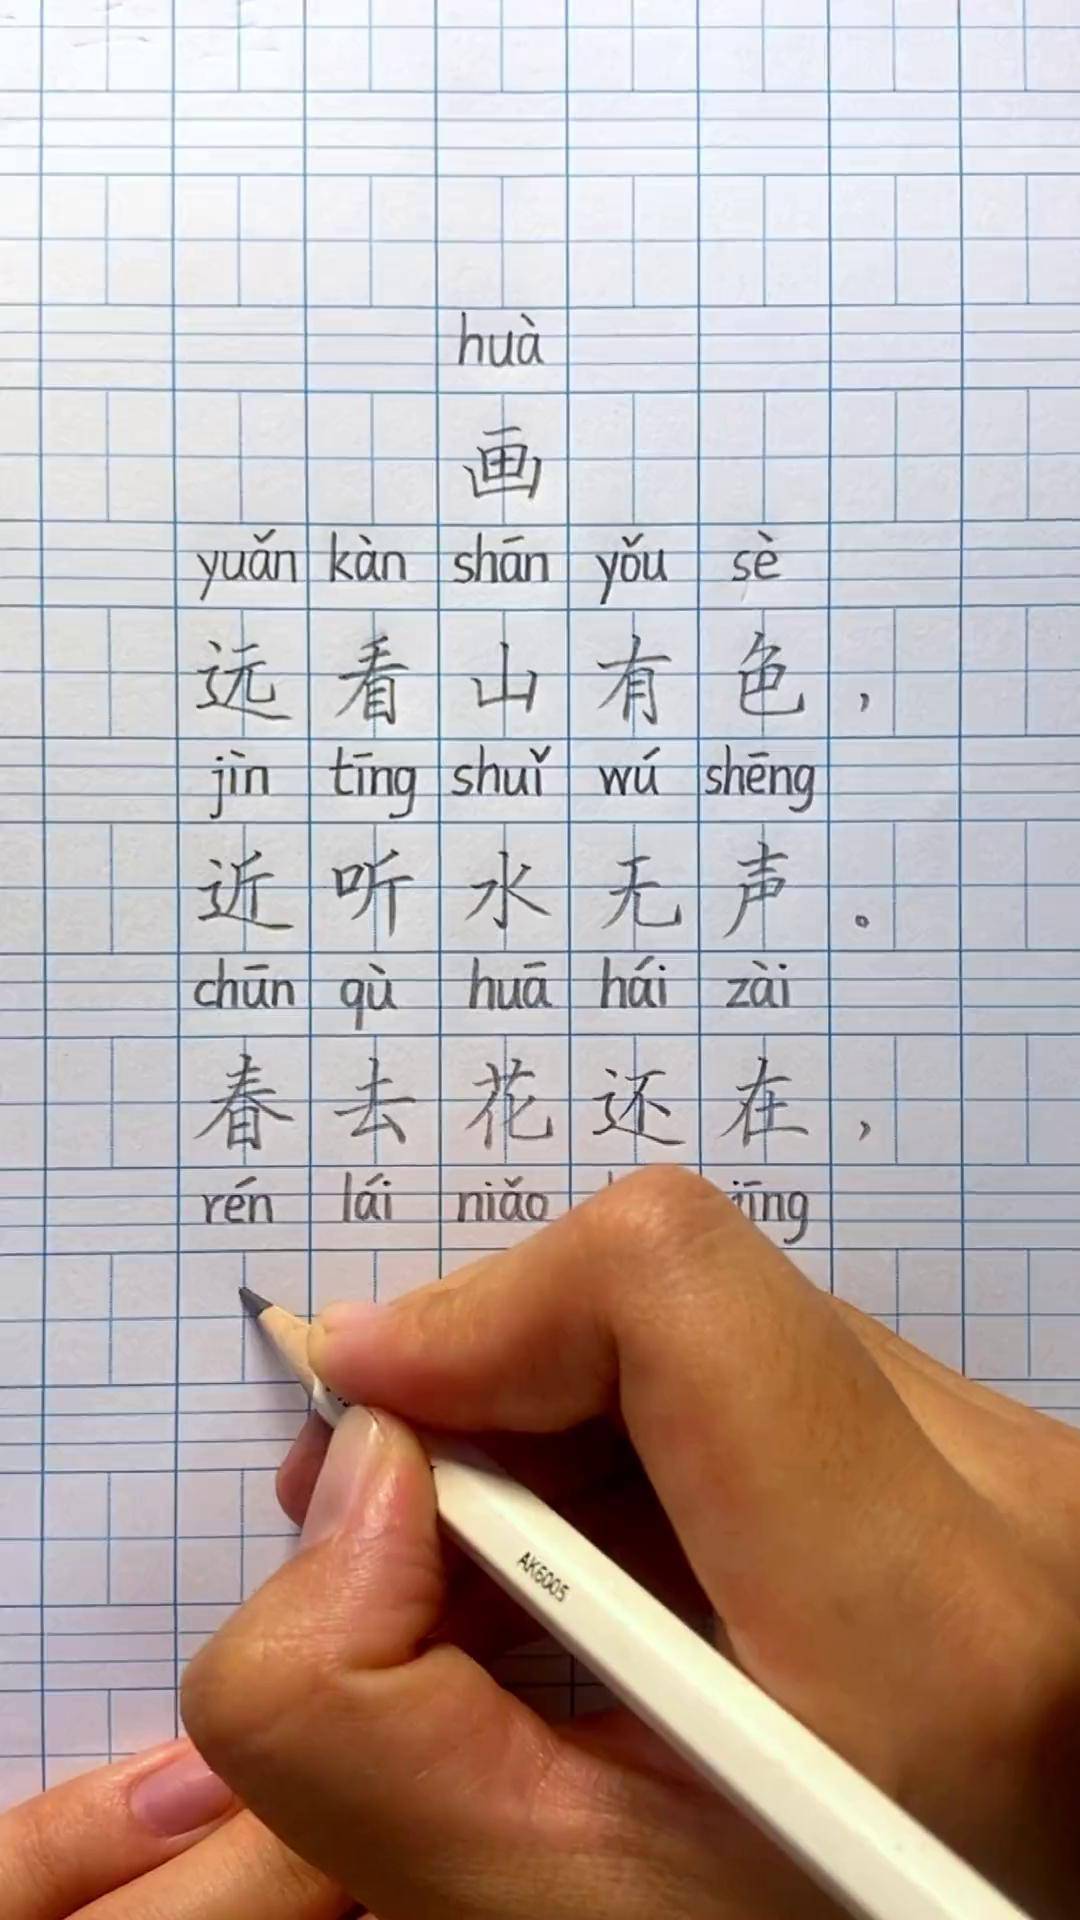 huà
画
yuǎn kàn shān yǒu sè
远看山有色，
jìn tīng shuǐ wú shēng
近听水无声。
chūn qù huā hái zài
春去花还在，
rén lái niǎo jīng
AK6005